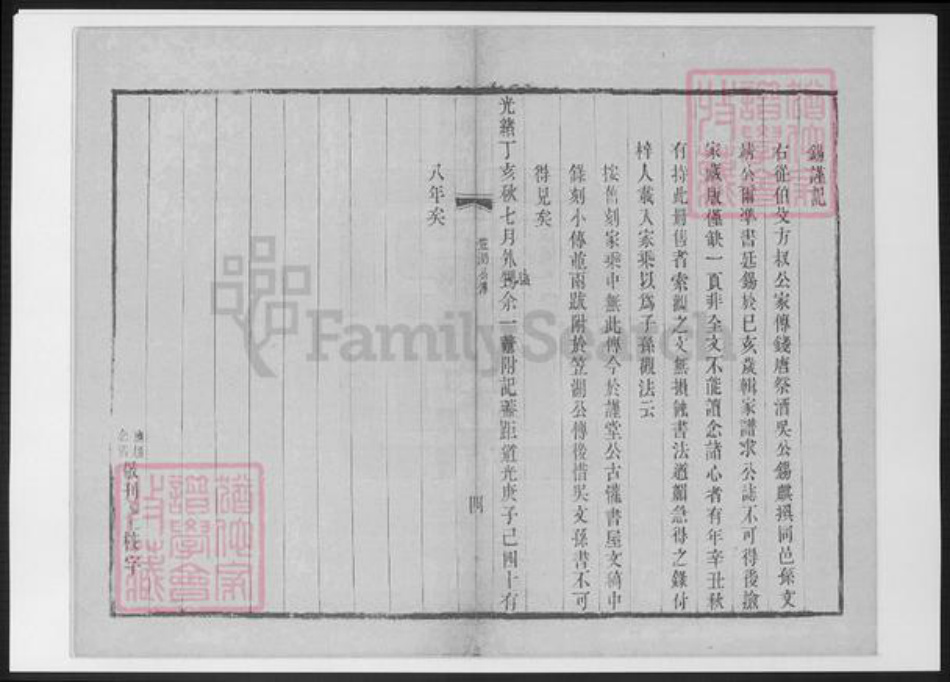 錫謹記
右從伯父方叔公家傳錢唐祭酒吳公錫麒撰同邑孫文
靖公爾準書廷錫於己亥歲輯家譜求公誌不可得後撿
家藏版僅缺一頁非全文不能讀念諸心者有年辛丑秋
有持此冊售者索觀之文無損蝕書法遒媚急得之錄付
梓人載入家乘以為子孫觀法云
按舊刻家乘中無此傳今於謹堂公古懽書屋文稿中
錄刻小傳並兩跋附於笠湖公傳後惜吳文孫書不可
得見矣
光緒丁亥秋七月外余一鼇附記蓋距道光庚子已四十有
八年矣
笠湖公傳
四
敬刊
字
猶他家譜學會收藏
猶他家譜學會收藏
FamilySearch